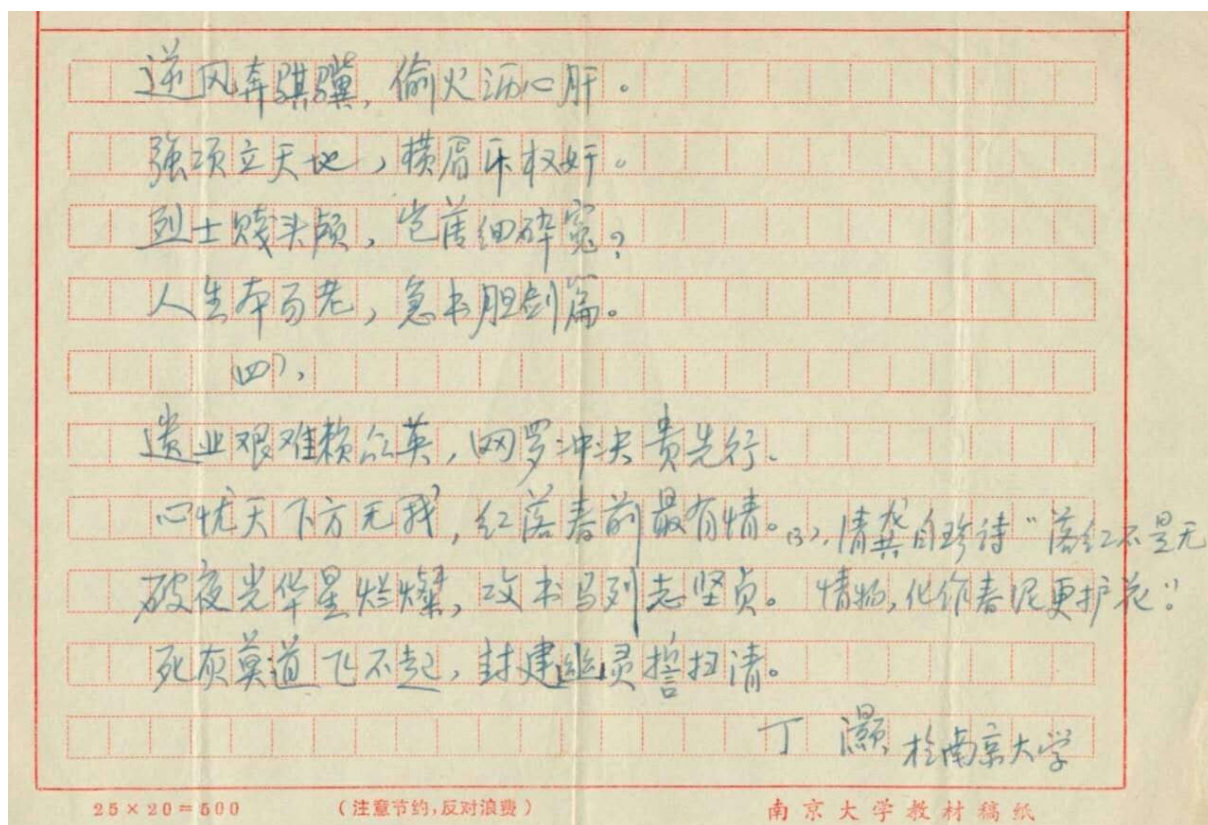 逆风奔骐骥，偷火沥心肝。
强项立天地，横眉斥权奸。
烈士贱头颅，岂畏细碎冤？
人生本易老，急书胆剑篇。
四），
遗业艰难赖众英，网罗冲决贵先行。
心忧天下方无我，红落春前最有情。(3)，情龚自珍诗“落红不是无
破夜光华星烂灿，攻书马列志坚贞。情物，化作春泥更护花”。
死灰莫道飞不起，封建幽灵誓扫清。
丁灏 于南京大学
25×20=500 （注意节约，反对浪费） 南京大学教材稿纸